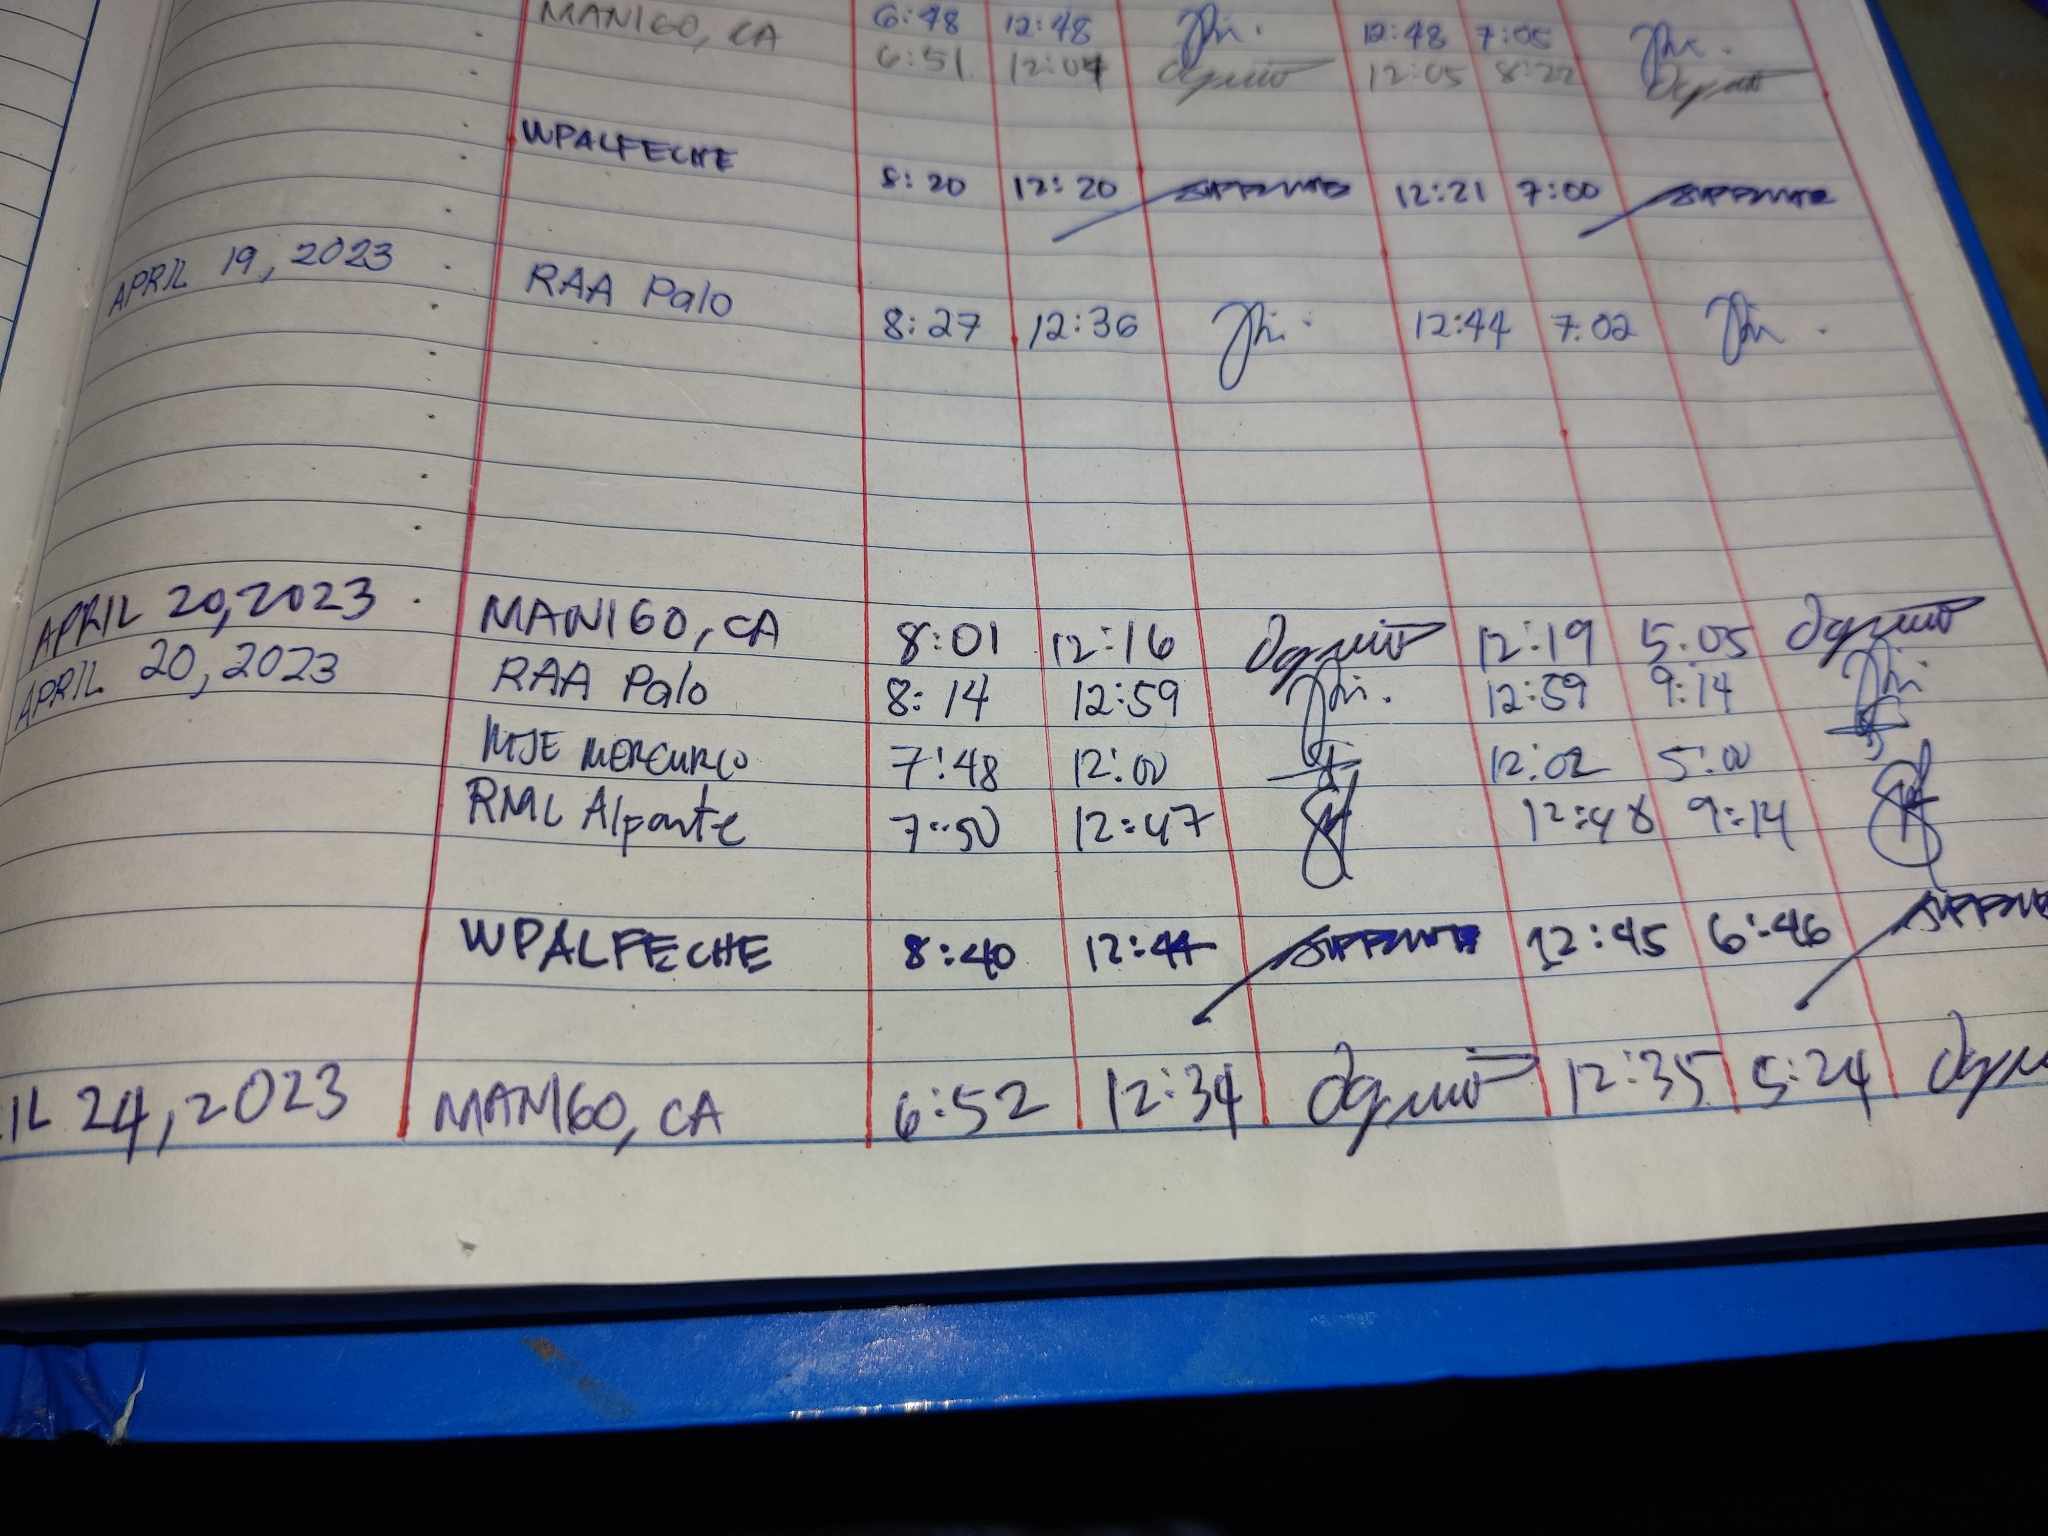 6:48 12:48 12:48 7:05
MANIGO, CA 6:51 12:04 12:05 8:22
WPALFECHE 8:20 12:20 12:21 7:00
APRIL 19, 2023 RAA Palo 8:27 12:36 12:44 7:02
APRIL 20, 2023 MANIGO, CA 8:01 12:16 12:19 5:05
APRIL 20, 2023 RAA Palo 8:14 12:59 12:59 9:14
MJE MERCURIO 7:48 12:00 12:02 5:00
RML Alparte 7:50 12:47 12:48 9:14
WPALFECHE 8:40 12:44 12:45 6:46
IL 24, 2023 MANIGO, CA 6:52 12:34 12:35 5:24